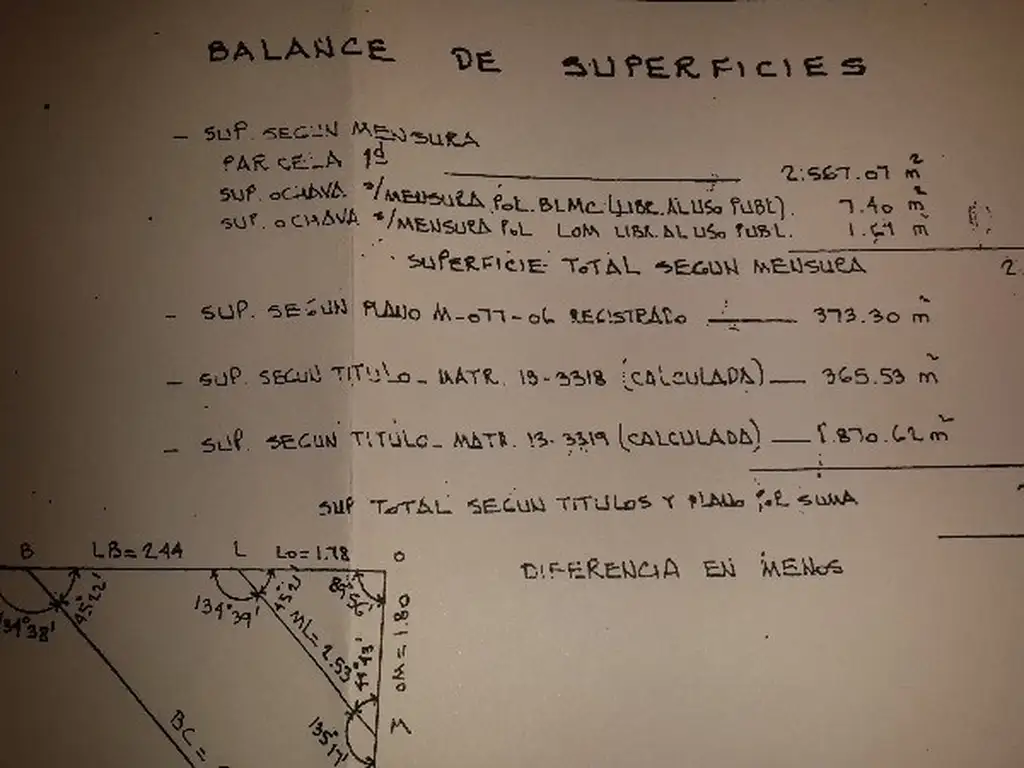 BALANCE DE SUPERFICIES
- SUP. SEGUN MENSURA
PARCELA 1d 2.567.07 m²
SUP. OCHAVA s/MENSURA POL. BLMC (LIBR. AL USO PUBL). 7.40 m²
SUP. OCHAVA s/MENSURA POL LOM LIBR. AL USO PUBL. m²
SUPERFICIE TOTAL SEGUN MENSURA 2.
- SUP. SEGUN PLANO M-077-06 REGISTRADO 373.30 m²
- SUP. SEGUN TITULO - MATR. 13-3318 (CALCULADA) 365.53 m²
- SUP. SEGUN TITULO - MATR. 13-3319 (CALCULADA) 1.870.62 m²
SUP TOTAL SEGUN TITULOS Y PLANO POR SUMA
DIFERENCIA EN MENOS
B LB=2.44 L LO=1.78 O
134°38' 45°22' 134°39' 45°21' 89°56'
ML=2.53 44°43' OM=1.80
135°17' M
BC=